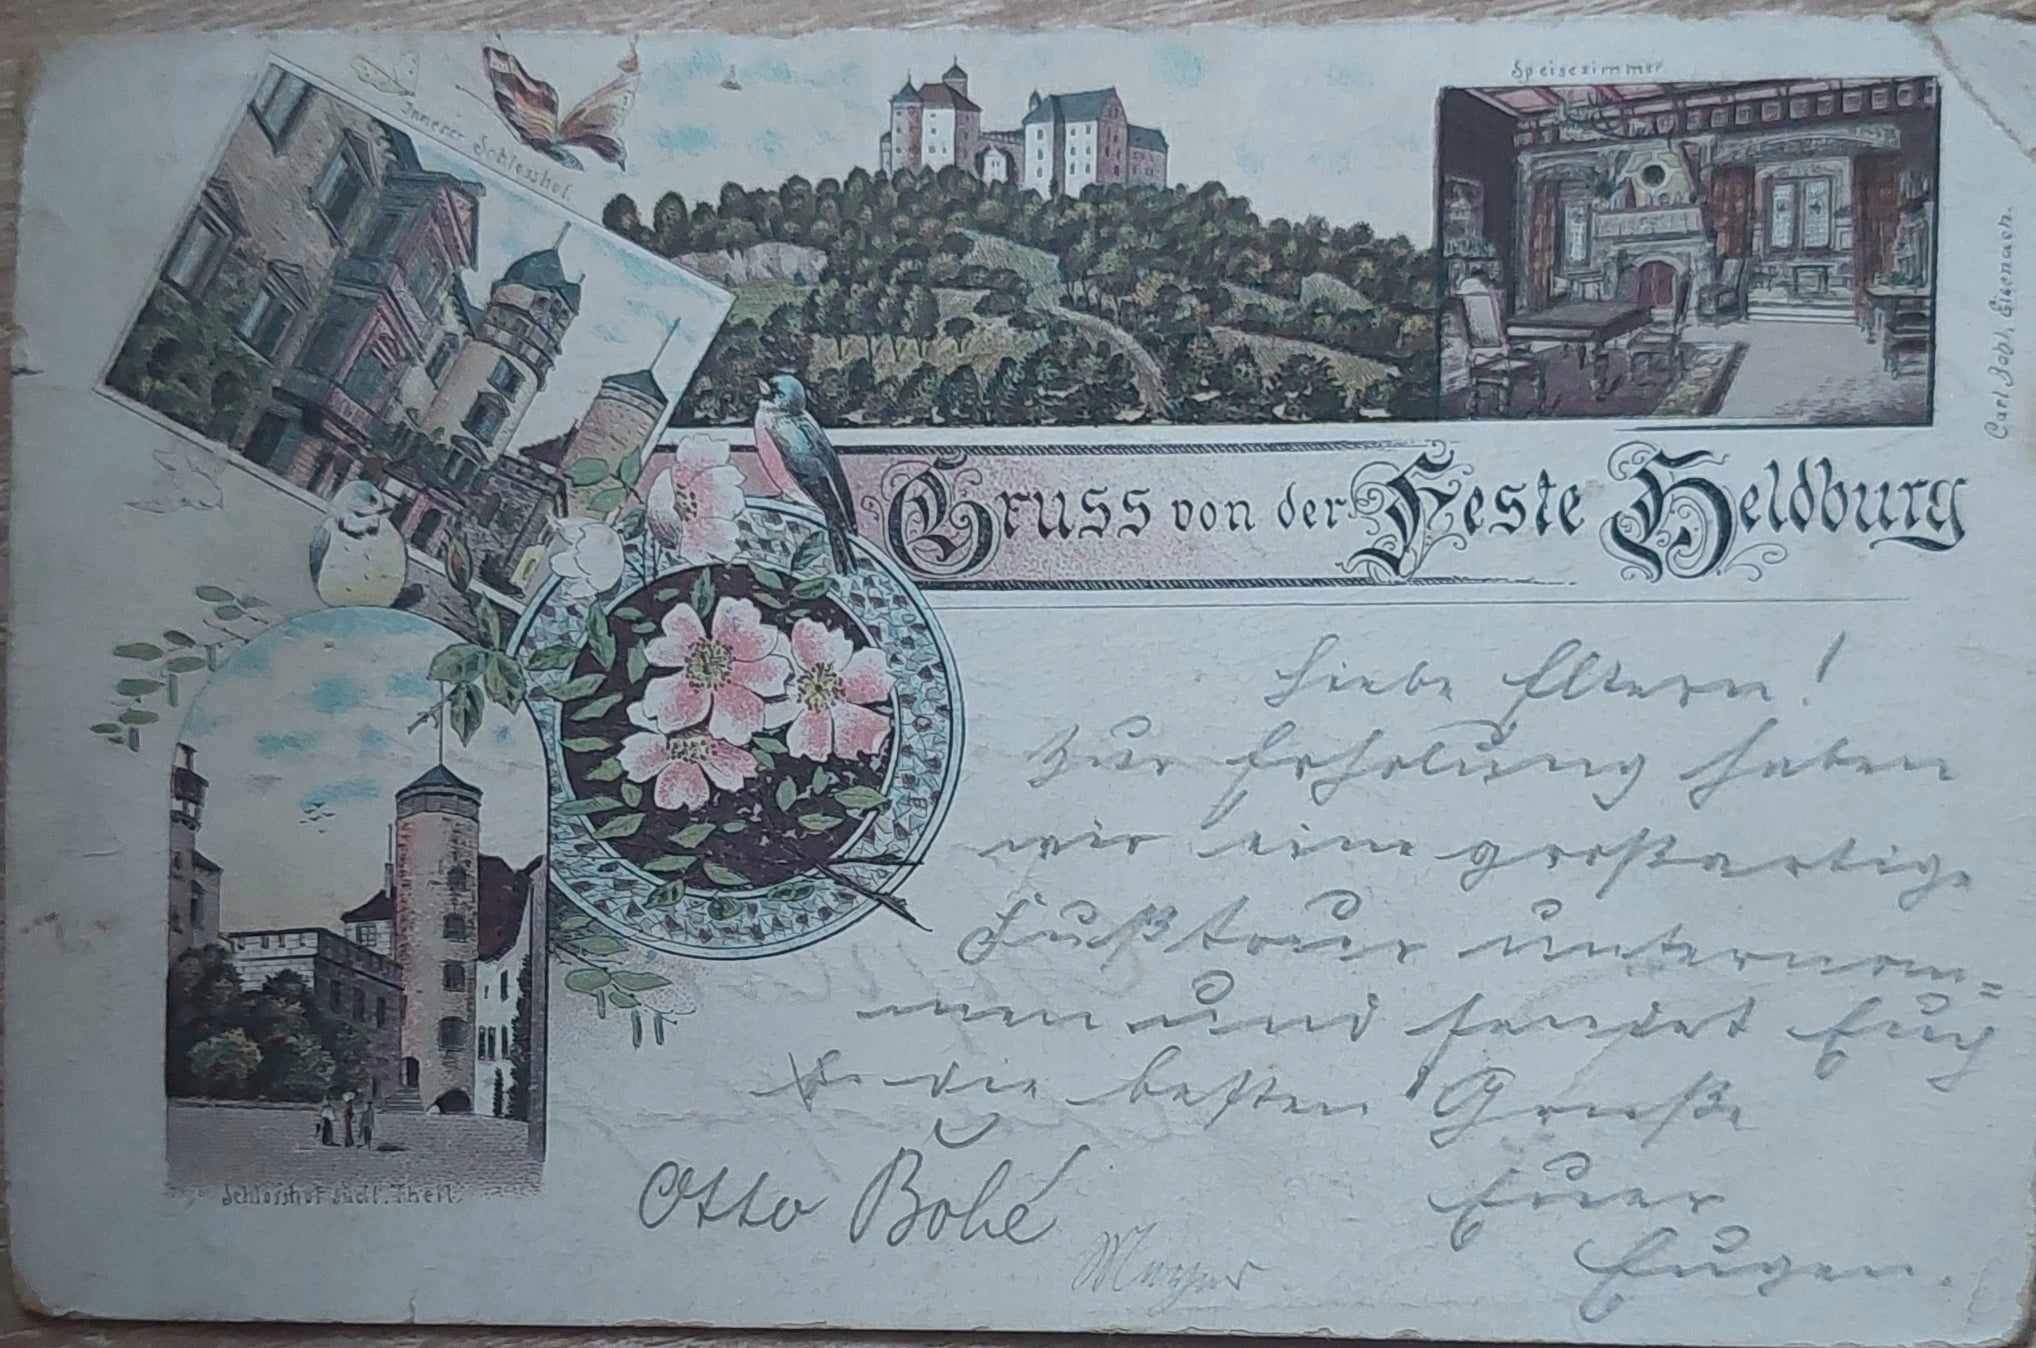 Innerer Schlosshof.
Speisezimmer
Carl Bohl, Eisenach.
Gruss von der Feste Heldburg
Liebe Eltern!
Zur Erholung haben
wir eine großartige
Fußtour unternom=
men und sendet Euch
die besten Grüße
Euer
Eugen.
Otto
Schlosshof südl. Theil.